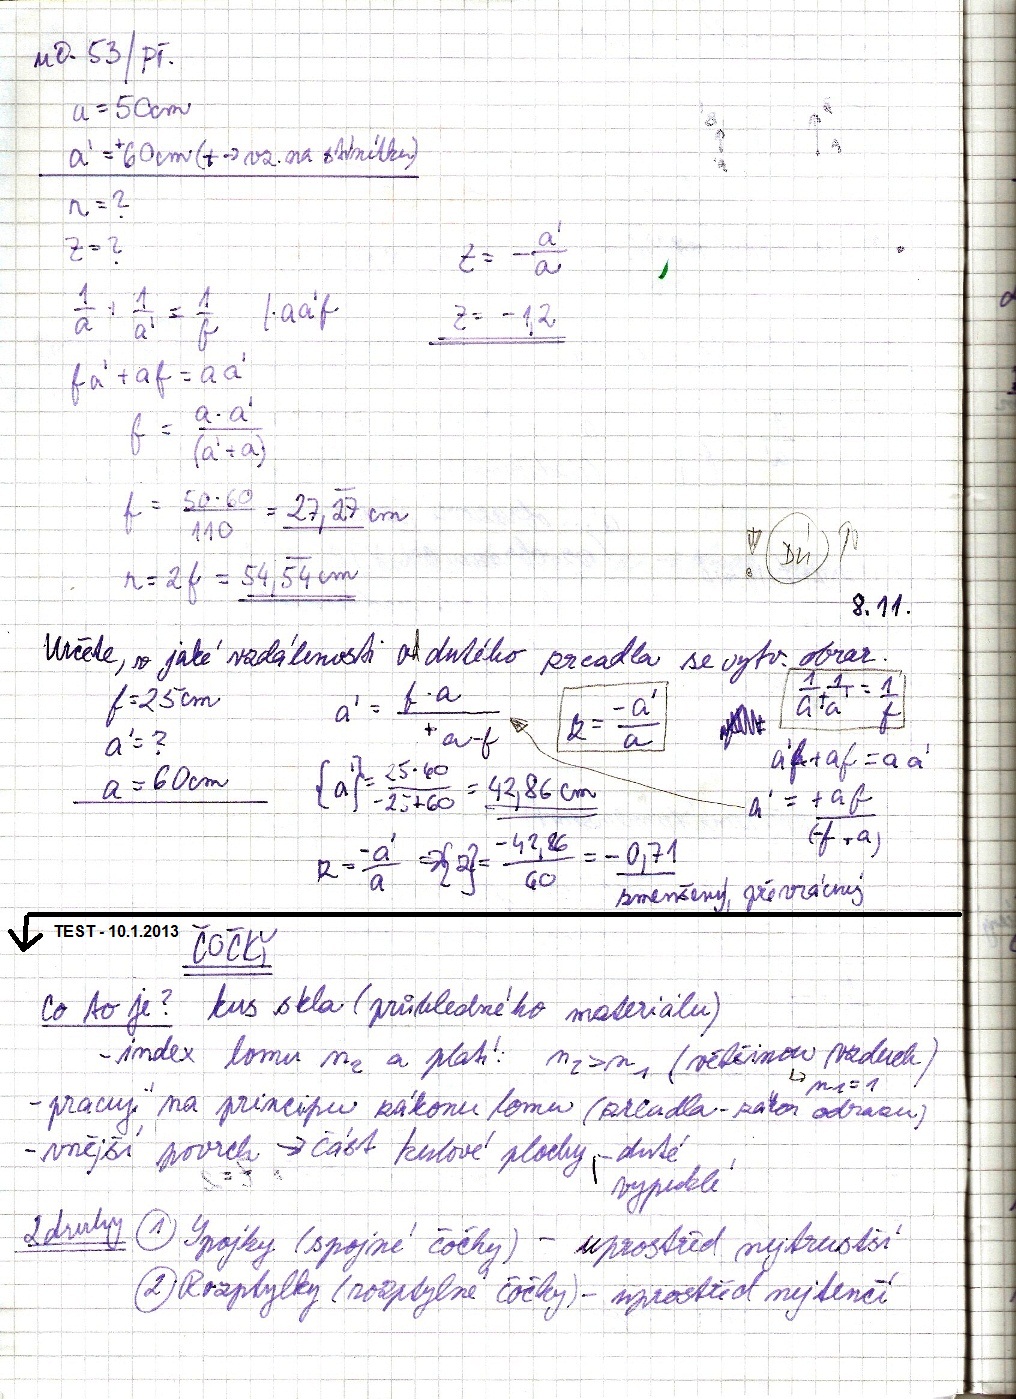 MO. 53/PŤ.
a = 50cm
a' = +60cm (+ -> vz. na stínítku)
r = ?
Z = ?
Z = - a'/a
1/a + 1/a' = 1/f /·aa'f
Z = -1,2
fa' + af = aa'
f = a·a'/(a'+a)
f = 50·60/110 = 27,27 cm
r = 2f = 54,54 cm
! DÚ
8.11.
Určete, v jaké vzdálenosti od dutého zrcadla se vytv. obraz.
f = 25cm
a' = f·a/+a-f
Z = -a'/a
1/a + 1/a' = 1/f
a' = ?
a'f + af = aa'
a = 60cm
{a'} = 25·60/-25+60 = 42,86 cm
a' = +af/(-f+a)
Z = -a'/a => {Z} = -42,86/60 = -0,71
zmenšený, převrácený
TEST - 10.1.2013
ČOČKY
Co to je? kus skla (průhledného materiálu)
- index lomu n2 a platí: n2 > n1 (většinou vzduch)
n1 = 1
- pracují na principu zákonu lomu (zrcadla - zákon odrazu)
- vnější povrch -> část kulové plochy - duté
vypuklé
2 druhy 1 Spojky (spojné čočky) - uprostřed nejtlustší
2 Rozptylky (rozptylné čočky) - uprostřed nejtenčí